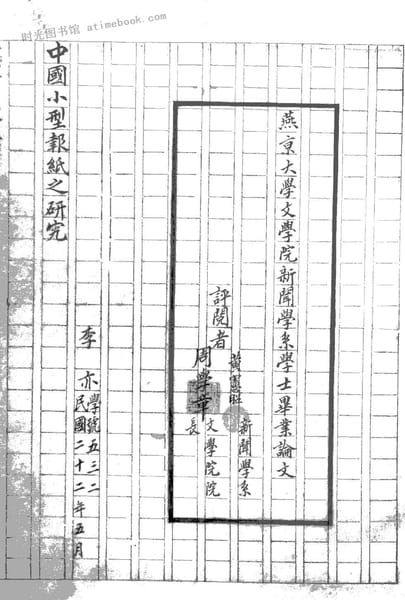 时光图书馆 atimebook.com
燕京大學文學院新聞學系學士畢業論文
評閱者
黃憲昭 新聞學系
周學章 文學院院長
中國小型報紙之研究
李亦
學號五三二
民國二十二年五月